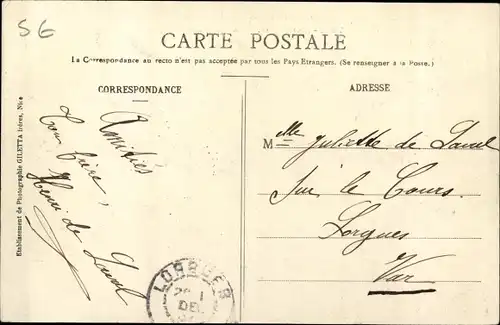 56
CARTE POSTALE
La Correspondance au recto n'est pas acceptée par tous les Pays Etrangers. (Se renseigner à la Poste.)
CORRESPONDANCE
ADRESSE
Etablissement de Photographie GILETTA frères, Nice
Amitiés
Ton frère,
Henri de Laval
Mlle Juliette de Laval
sur le Cours
Lorgues
Var
LORGUES
DEC